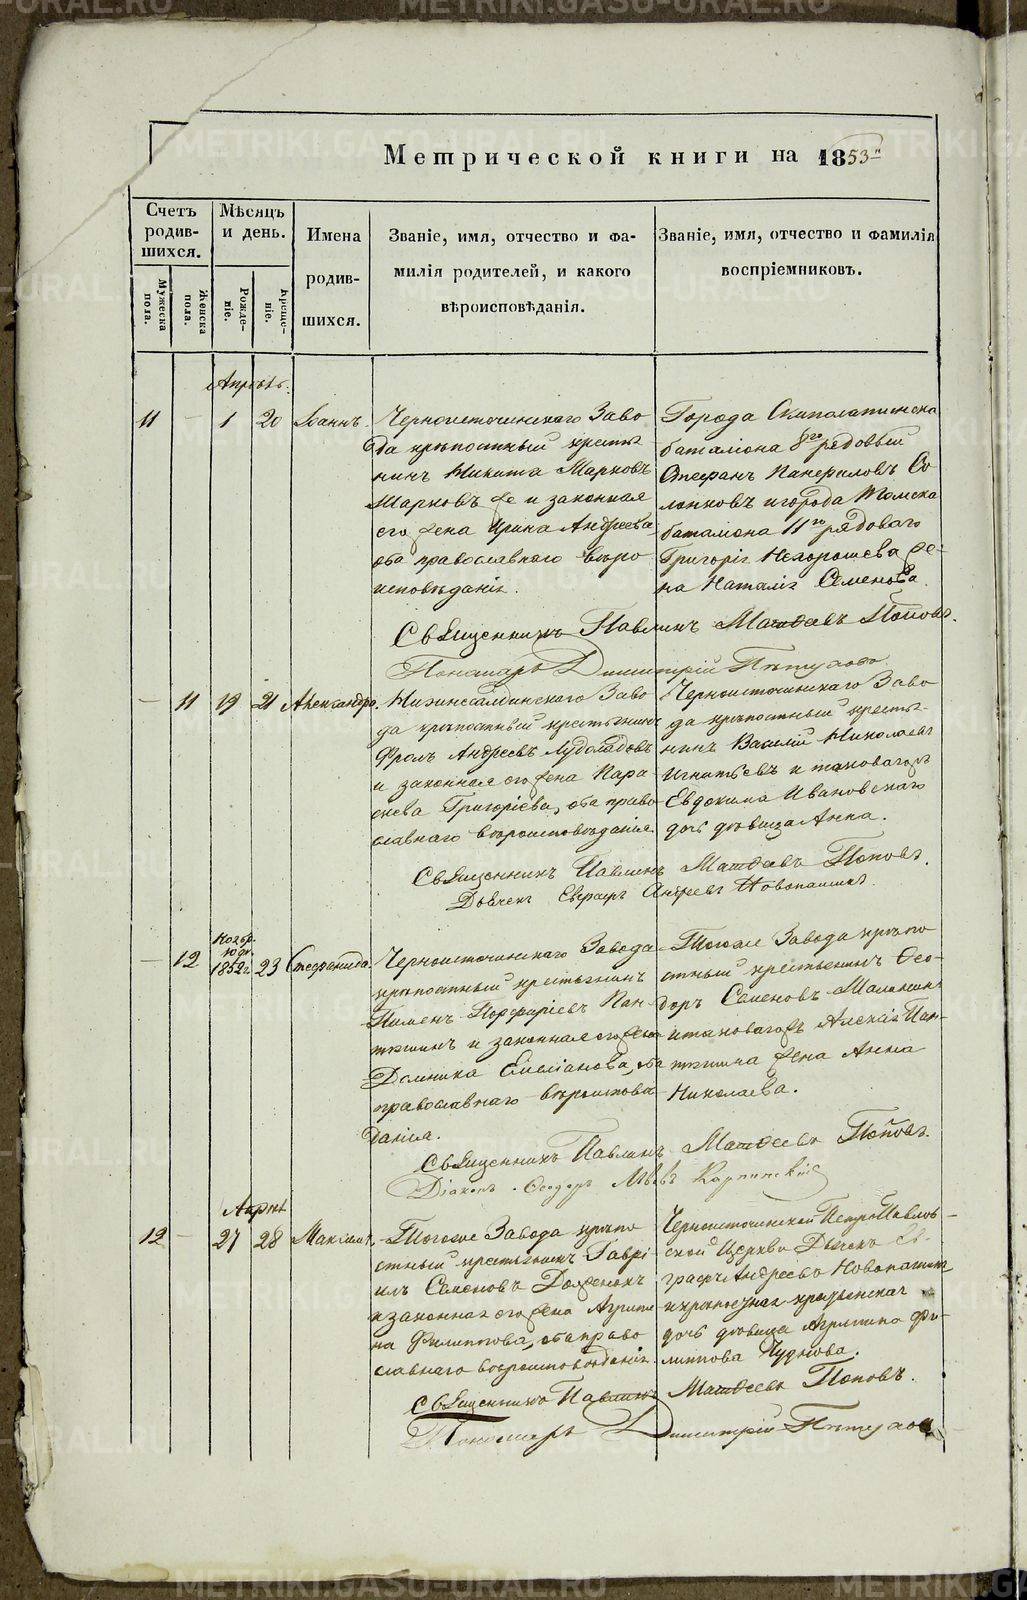 Метрической книги на 1853й
Счетъ родив-шихся.
Мѣсяцъ и день.
Имена родив-шихся.
Званіе, имя, отчество и фа-
милія родителей, и какого
вѣроисповѣданія.
Званіе, имя, отчество и фамилія
воспріемниковъ.
Мужеска пола.
Женска пола.
Рожде-ніе.
Креще-ніе.
Апрѣль.
11 - 1 20 Іоаннъ.
Черноисточинскаго Заво
да крѣпостный кресть
нинъ Никита Марковъ
Марковъ же и законная
его жена Ирина Андреева
оба православнаго вѣро
исповѣданія.
Города Семиполатинска
баталіона 8го рядовый
Стефанъ Панфиловъ Со
и города Томска
баталіона 11го рядоваго
Григорія Нехорошева же-
на Наталія Семенова.
Священникъ Павлинъ Матѳеевъ Поповъ.
Пономарь Димитрій Пѣтуховъ
- 11 19 21 Александра.
Нижнесалдинскаго Заво
да крѣпостный крестьянинъ
Фролъ Андреевъ
и законная его жена Пара
скева Григоріева, оба право
славнаго вѣроисповѣданія.
Черноисточинскаго Заво
да крѣпостный кресть-
нинъ Василій Николаевъ
Игнатьевъ и таковагожъ
Евдокима Ивановскаго
дочь дѣвица Анна.
Священникъ Павлинъ Матѳеевъ Поповъ.
Дьячекъ Евграфъ Андреевъ Новопашинъ.
- 12 Ноябр. 10 дн. 1852г. 23 Стефанида.
Черноисточинскаго Завода
крѣпостный крестьянинъ
Пименъ Порфиріевъ Пан-
тѣшинъ и законная его жена
Домника Емеліанова, оба
православнаго вѣроисповѣ
данія.
Тогоже Завода крѣпо
стный крестьянинъ Ѳео-
доръ Семеновъ Маланинъ
и таковагожъ Алексія Пан-
тѣшина жена Анна
Николаева.
Священникъ Павлинъ Матѳеевъ Поповъ.
Діаконъ Ѳеодоръ Львовъ Карпинскій
Апрѣль
12 - 27 28 Максимъ.
Тогоже Завода крѣпо
стный крестьянинъ Гаврі
илъ Семеновъ
и законная его жена Агрипи
на Филиппова, оба право
славнаго вѣроисповѣданія.
Черноисточинской ПетроПавлов-
ской Церкви Дьячекъ Ев-
графъ Андреевъ Новопашин
и крѣпостнаго крестьянина
дочь дѣвица Агрипина Фи-
липпова Чудиова.
Священникъ Павлинъ Матѳеевъ Поповъ.
Пономарь Димитрій Пѣтуховъ
METRIKI.GASO-URAL.RU